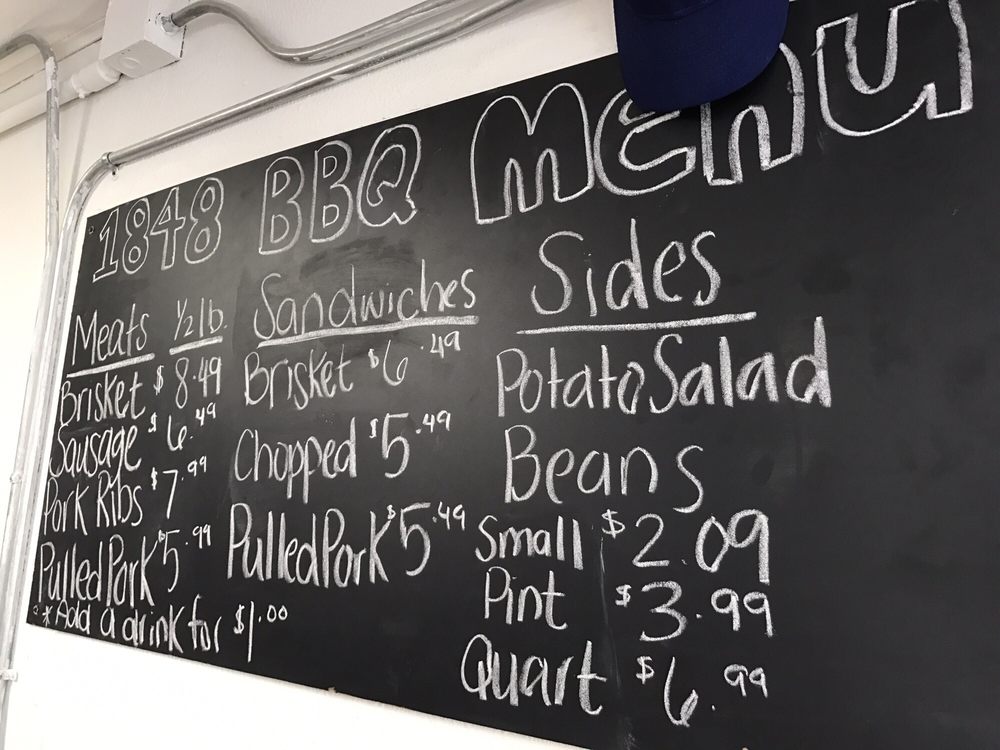 1848 BBQ Menu
Meats 1/2 lb.
Brisket $8.49
Sausage $6.49
Pork Ribs $7.99
Pulled Pork $5.99
*Add a drink for $1.00
Sandwiches
Brisket $6.49
Chopped $5.49
Pulled Pork $5.49
Sides
Potato Salad
Beans
Small $2.09
Pint $3.99
Quart $6.99